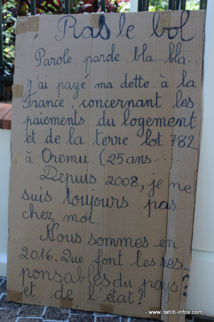 Ras le bol
Parole parde bla.. bla..
J'ai payé ma dette à la
France, concernant les
paiements du logement
et de la terre lot 782
à Oremu (25ans...
Depuis 2008, je me
suis toujours pas
chez moi.
Nous sommes en
2016. Que font les res
ponsables du pays
et de l'état ?
www.tahiti-infos.com